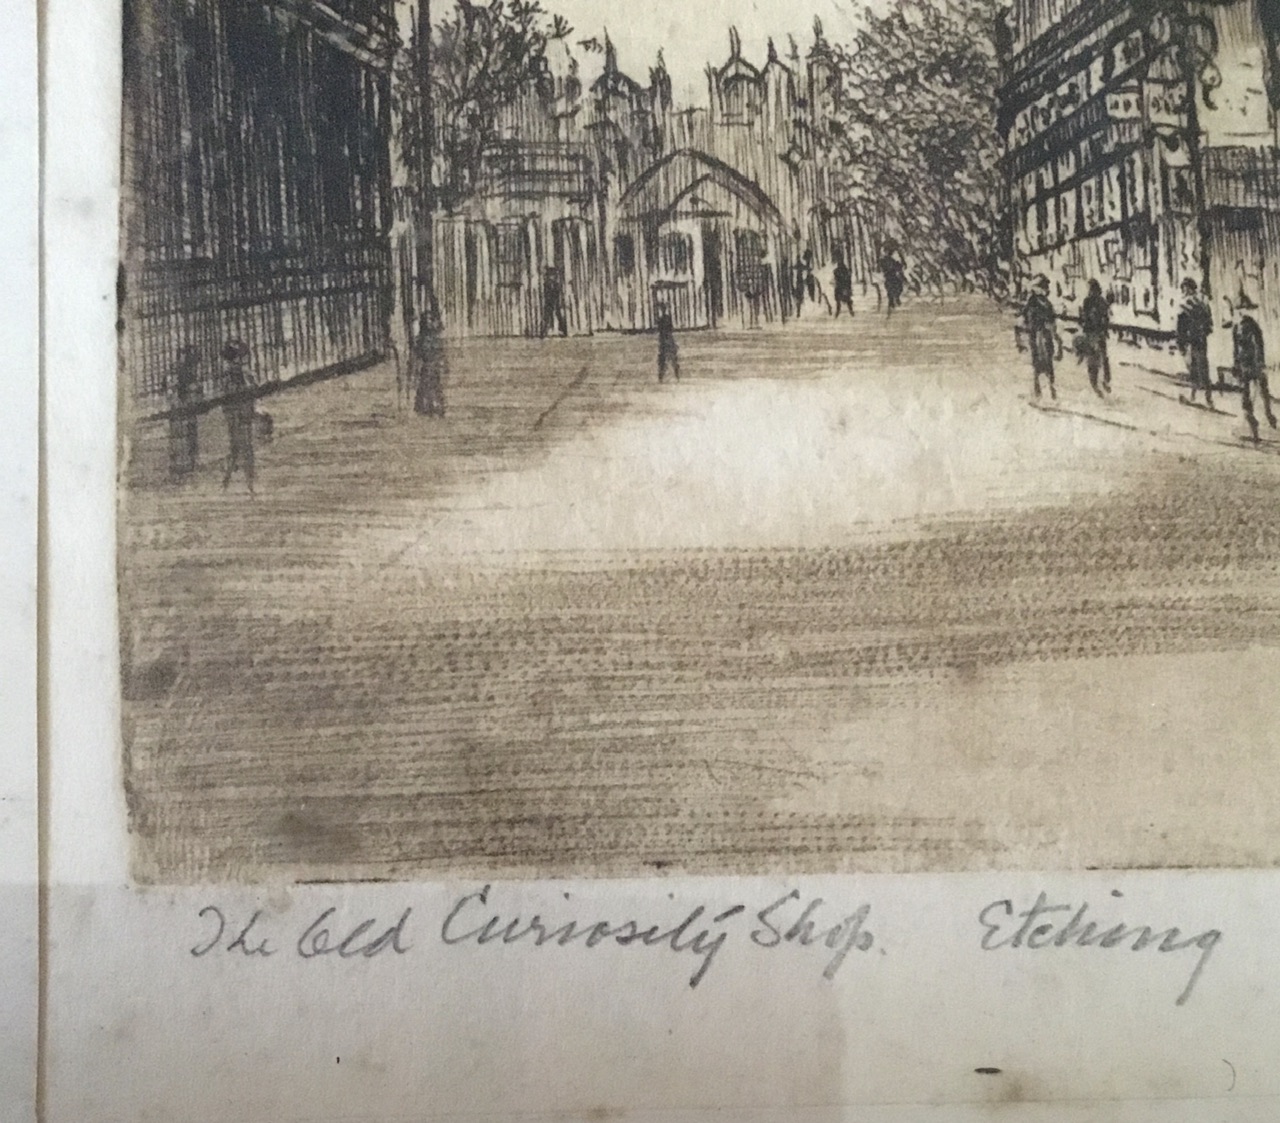 The Old Curiosity Shop. Etching